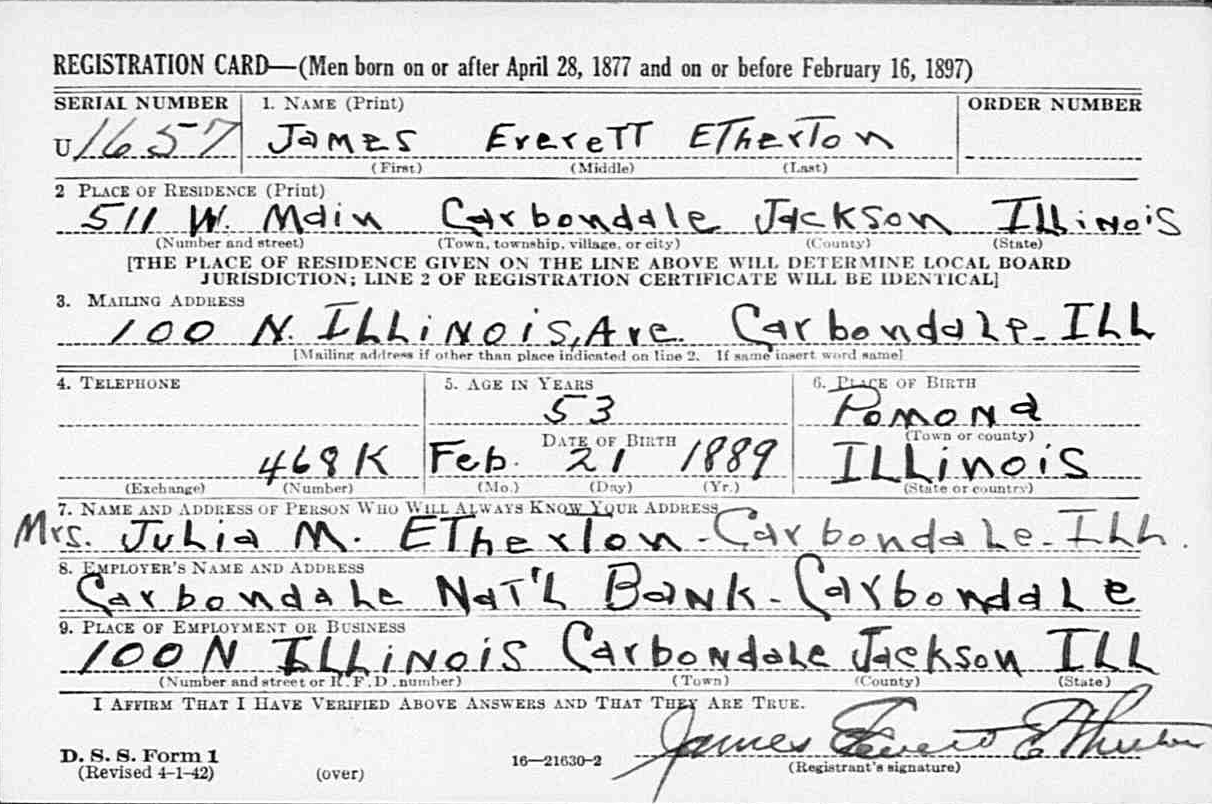 REGISTRATION CARD—(Men born on or after April 28, 1877 and on or before February 16, 1897)
SERIAL NUMBER 1. NAME (Print) ORDER NUMBER
U 1657 James Everett Etherton
(First) (Middle) (Last)
2 PLACE OF RESIDENCE (Print)
511 W. Main Carbondale Jackson Illinois
(Number and street) (Town, township, village, or city) (County) (State)
[THE PLACE OF RESIDENCE GIVEN ON THE LINE ABOVE WILL DETERMINE LOCAL BOARD
JURISDICTION; LINE 2 OF REGISTRATION CERTIFICATE WILL BE IDENTICAL]
3. MAILING ADDRESS
100 N. Illinois, Ave. Carbondale - Ill
[Mailing address if other than place indicated on line 2. If same insert word same]
4. TELEPHONE 5. AGE IN YEARS 6. PLACE OF BIRTH
53 Pomona
DATE OF BIRTH (Town or county)
468K Feb. 21 1889 Illinois
(Exchange) (Number) (Mo.) (Day) (Yr.) (State or country)
7. NAME AND ADDRESS OF PERSON WHO WILL ALWAYS KNOW YOUR ADDRESS
Mrs. Julia M. Etherton - Carbondale - Ill.
8. EMPLOYER'S NAME AND ADDRESS
Carbondale Nat'l Bank - Carbondale
9. PLACE OF EMPLOYMENT OR BUSINESS
100 N Illinois Carbondale Jackson Ill
(Number and street or R. F. D. number) (Town) (County) (State)
I AFFIRM THAT I HAVE VERIFIED ABOVE ANSWERS AND THAT THEY ARE TRUE.
James Everett Etherton
D. S. S. Form 1
(Revised 4-1-42) (over) 16—21630-2 (Registrant's signature)